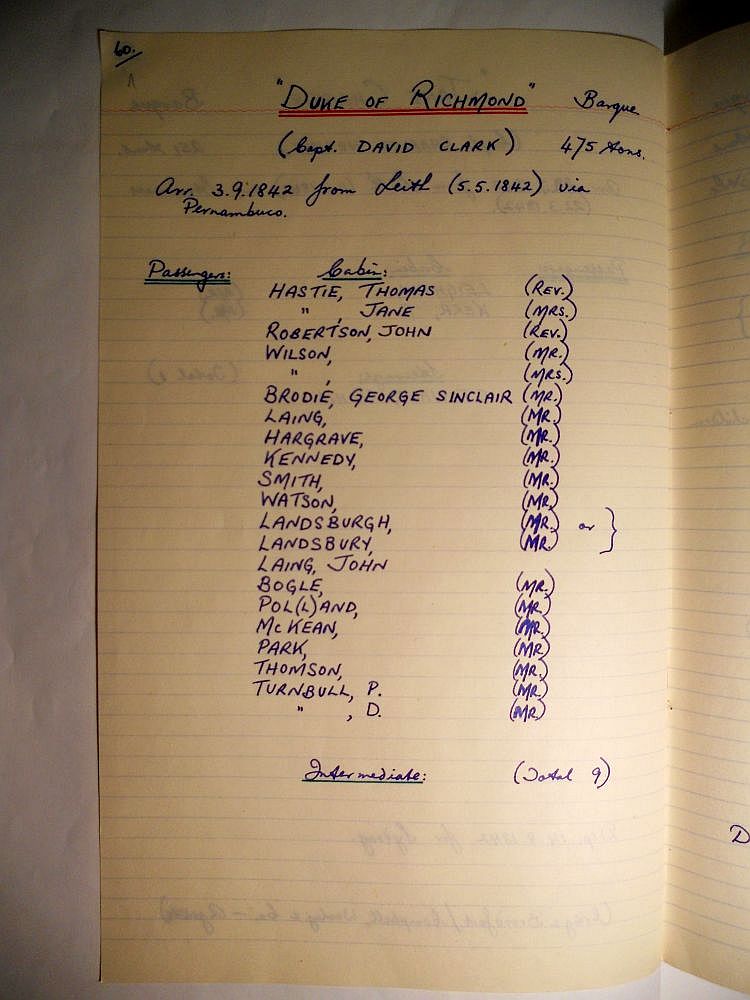 60.
"DUKE OF RICHMOND" Barque
(Capt. DAVID CLARK) 475 tons.
Arr. 3.9.1842 from Leith (5.5.1842) via
Pernambuco.
Passengers: Cabin:
HASTIE, THOMAS (REV.)
" , JANE (MRS.)
ROBERTSON, JOHN (REV.)
WILSON, (MR.)
" , (MRS.)
BRODIE, GEORGE SINCLAIR (MR.)
LAING, (MR.)
HARGRAVE, (MR.)
KENNEDY, (MR.)
SMITH, (MR.)
WATSON, (MR.)
LANDSBURGH, (MR.) or }
LANDSBURY, (MR.)
LAING, JOHN
BOGLE, (MR.)
POL(L)AND, (MR.)
McKEAN, (MR.)
PARK, (MR.)
THOMSON, (MR.)
TURNBULL, P. (MR.)
" , D. (MR.)
Intermediate: (Total 9)
D